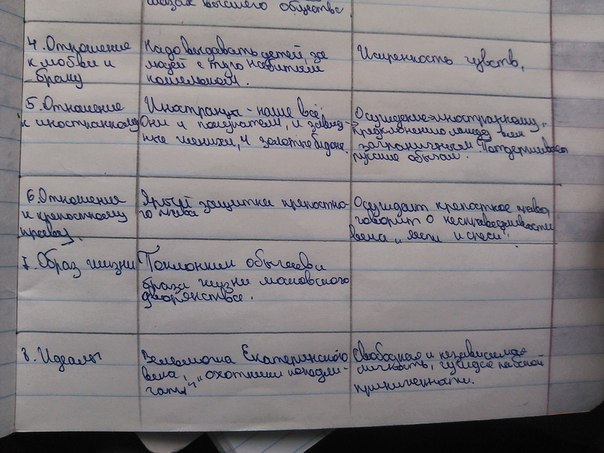 глазах высшего общества
4. Отношение
к любви и
браку
Надо выдавать детей за
людей с туго набитым
кошельком.
Искренность чувств.
5. Отношение
к иностранному
Иностранцы - наше всё!
Они и покупатели, и
ные женихи, и золотое
Осуждение иностранному,
всем
заграничным. Поддерживает
русские обычаи.
6. Отношения
к крепостному
праву
Ярый защитник крепостно-
го права
Осуждает крепостное право,
говорит о несправедливости
века „лести и спеси".
7. Образ жизни
Поклонник обычаев и
образа жизни московского
дворянства.
8. Идеалы
Вельможа Екатерининского
века, „охотники поподли-
чать"
Свободная и независимая
личность, чуждая рабской
приниженности.